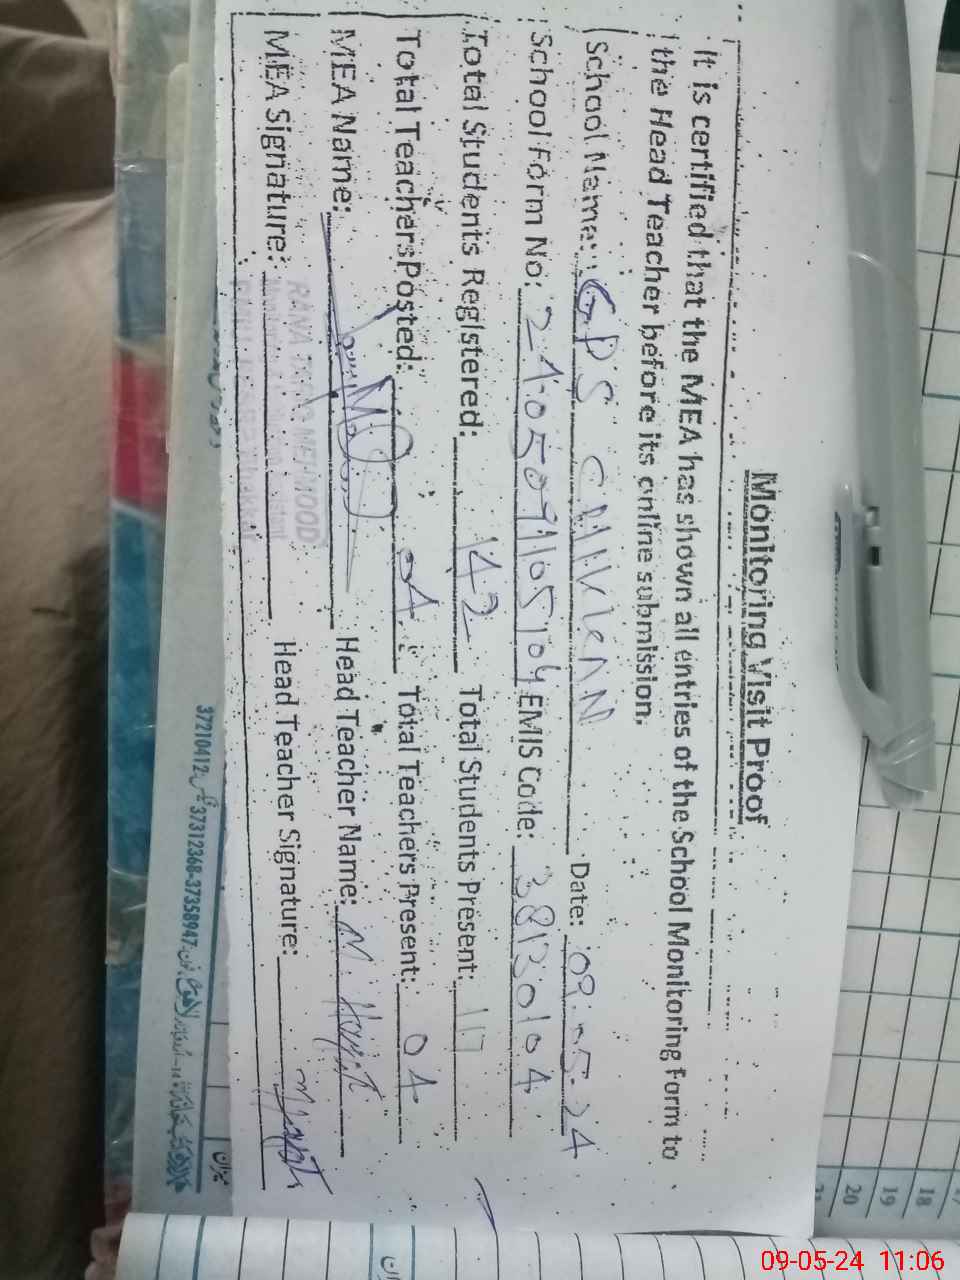 Monitoring Visit Proof
It is certified that the MEA has shown all entries of the School Monitoring Form to
the Head Teacher before its online submission.
School Name: GPS Date: 09-05-24
School Form No: EMIS Code: 38130104
Total Students Registered: 142 Total Students Present: 117
Total Teachers Posted: 04 Total Teachers Present: 04
MEA Name: Head Teacher Name: M. Hayat
MEA Signature: Head Teacher Signature:
RANA TARIQ MEHMOOD
37210412 37312368-37358947
18
19
20
21
09-05-24 11:06